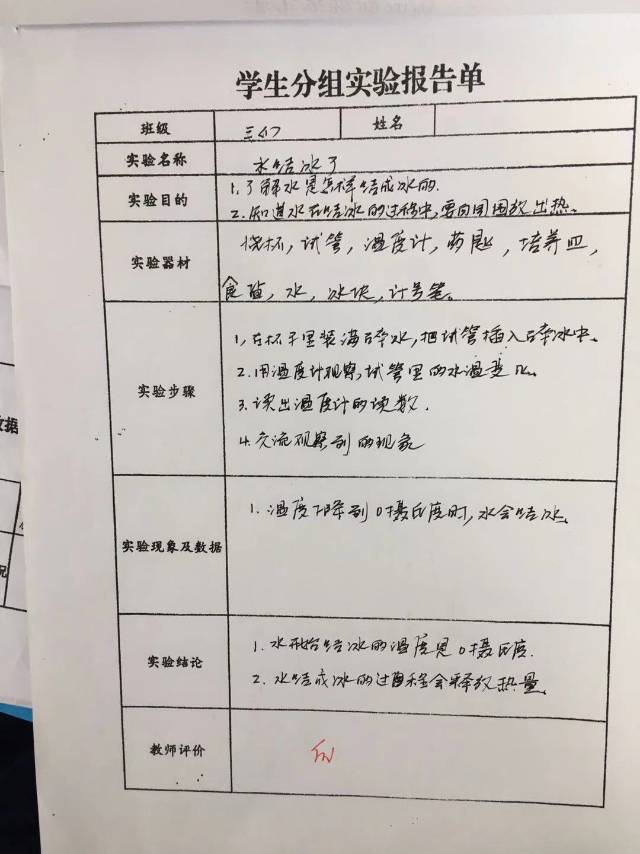 学生分组实验报告单
班级 三(1) 姓名
实验名称 水结冰了
实验目的 1.了解水是怎样结成冰的.
2.知道水在结冰的过程中,要向周围放出热。
实验器材 烧杯,试管,温度计,药匙,培养皿,
食盐,水,冰块,计号笔。
实验步骤 1,在杯子里装满碎冰,把试管插入碎冰中。
2.用温度计观察,试管里的水温变化。
3.读出温度计的读数.
4.交流观察到的现象
实验现象及数据 1.温度下降到0摄氏度时,水会结冰。
实验结论 1.水开始结冰的温度是0摄氏度.
2.水结成冰的过程会释放热量。
教师评价
数据
况